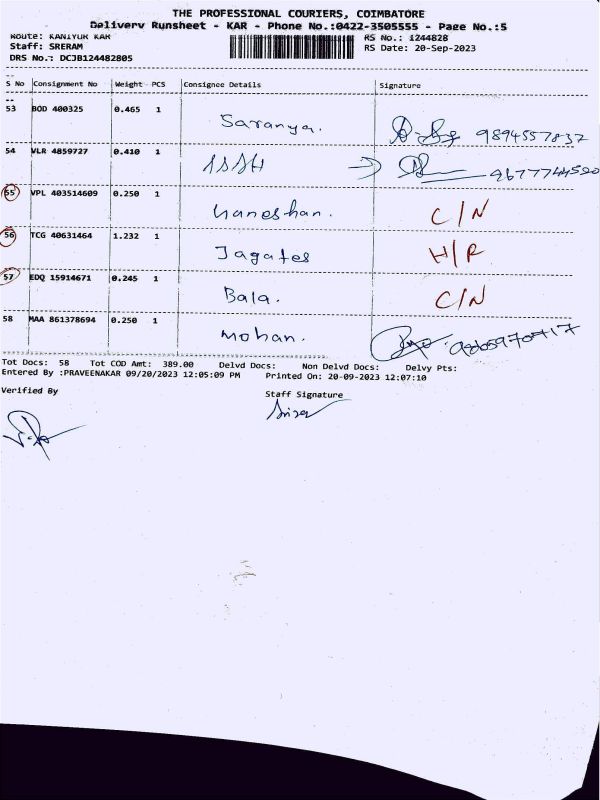 THE PROFESSIONAL COURIERS, COIMBATORE
Delivery Runsheet - KAR - Phone No.:0422-3505555 - Page No.:5
Route: KANIYUR KAR RS No.: 1244828
Staff: SRERAM RS Date: 20-Sep-2023
DRS No.: DCJB124482805
S No Consignment No Weight PCS Consignee Details Signature
53 BOD 400325 0.465 1 Saranya. 9894557837
54 VLR 4859727 0.410 1
55 VPL 403514609 0.250 1 Ganeshan. C/N
56 TCG 40631464 1.232 1 Jagates H/R
57 EDQ 15914671 0.245 1 Bala. C/N
58 MAA 861378694 0.250 1 Mohan.
Tot Docs: 58 Tot COD Amt: 389.00 Delvd Docs: Non Delvd Docs: Delvy Pts:
Entered By :PRAVEENAKAR 09/20/2023 12:05:09 PM Printed On: 20-09-2023 12:07:10
Verified By Staff Signature